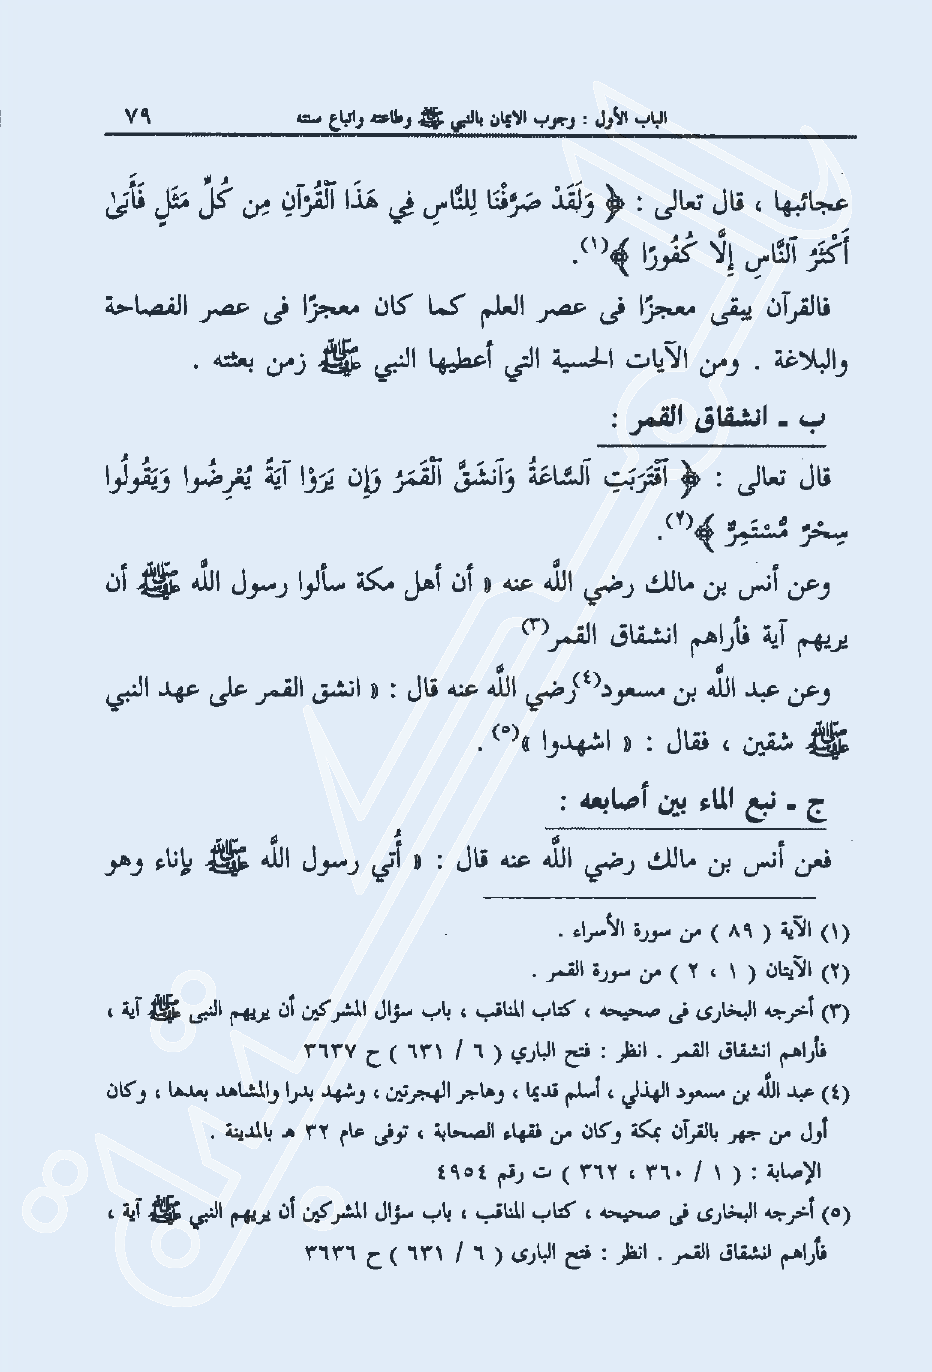 الباب الأول : وجوب الايمان بالنبي ﷺ وطاعته واتباع سنته ٧٩
عجائبها ، قال تعالى : ﴿ وَلَقَدْ صَرَّفْنَا لِلنَّاسِ فِي هَذَا ٱلْقُرْآنِ مِن كُلِّ مَثَلٍ فَأَبَىٰ
أَكْثَرُ ٱلنَّاسِ إِلَّا كُفُورًا ﴾(١).
فالقرآن يبقى معجزًا فى عصر العلم كما كان معجزًا فى عصر الفصاحة
والبلاغة . ومن الآيات الحسية التي أعطيها النبي ﷺ زمن بعثته .
ب ـ انشقاق القمر :
قال تعالى : ﴿ ٱقْتَرَبَتِ ٱلسَّاعَةُ وَٱنشَقَّ ٱلْقَمَرُ وَإِن يَرَوْا آيَةً يُعْرِضُوا وَيَقُولُوا
سِحْرٌ مُّسْتَمِرٌّ ﴾(٢).
وعن أنس بن مالك رضي اللَّه عنه « أن أهل مكة سألوا رسول اللَّه ﷺ أن
يريهم آية فأراهم انشقاق القمر(٣)
وعن عبد اللَّه بن مسعود(٤)رضي اللَّه عنه قال : « انشق القمر على عهد النبي
ﷺ شقين ، فقال : « اشهدوا »(٥) .
ج ـ نبع الماء بين أصابعه :
فعن أنس بن مالك رضي اللَّه عنه قال : « أُتي رسول اللَّه ﷺ بإناء وهو
(١) الآية ( ٨٩ ) من سورة الأسراء .
(٢) الآيتان ( ١ ، ٢ ) من سورة القمر .
(٣) أخرجه البخارى فى صحيحه ، كتاب المناقب ، باب سؤال المشركين أن يريهم النبى ﷺ آية ،
فأراهم انشقاق القمر . انظر : فتح الباري ( ٦ / ٦٣١ ) ح ٣٦٣٧
(٤) عبد اللَّه بن مسعود الهذلي ، أسلم قديما ، وهاجر الهجرتين ، وشهد بدرا والمشاهد بعدها ، وكان
أول من جهر بالقرآن بمكة وكان من فقهاء الصحابة ، توفى عام ٣٢ هـ بالمدينة .
الإصابة : ( ١ / ٣٦٠ ، ٣٦٢ ) ت رقم ٤٩٥٤
(٥) أخرجه البخارى فى صحيحه ، كتاب المناقب ، باب سؤال المشركين أن يريهم النبي ﷺ آية ،
فأراهم انشقاق القمر . انظر : فتح البارى ( ٦ / ٦٣١ ) ح ٣٦٣٦